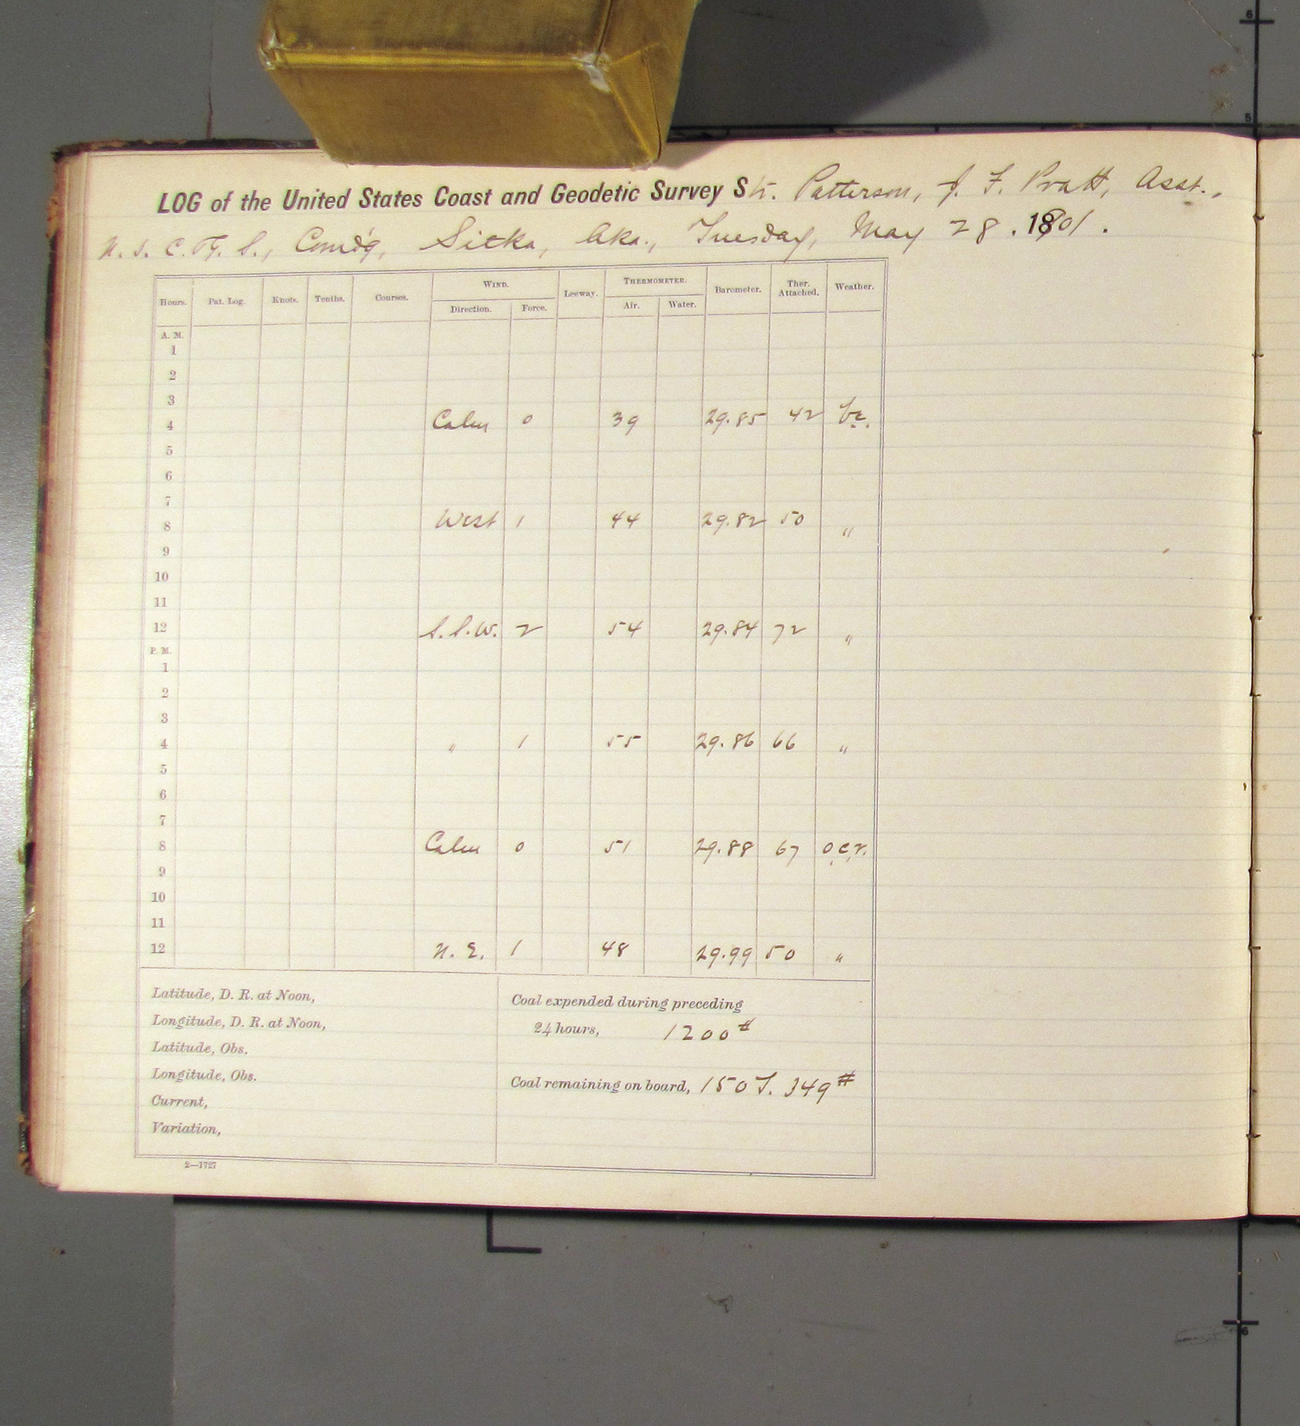 LOG of the United States Coast and Geodetic Survey Str. Patterson, J. F. Pratt, Asst.,
U. S. C. & G. S., Comd'g, Sitka, Aka., Tuesday, May 28. 1901.
Hours. Pat. Log. Knots. Tenths. Courses. WIND. Leeway. THERMOMETER. Barometer. Ther. Attached. Weather.
Direction. Force. Air. Water.
A. M.
1
2
3
4 Calm 0 39 29.85 42 bc.
5
6
7
8 West 1 44 29.82 50 "
9
10
11
12 S.S.W. 2 54 29.84 72 "
P. M.
1
2
3
4 " 1 55 29.86 66 "
5
6
7
8 Calm 0 51 29.88 67 o.c.r.
9
10
11
12 N. E. 1 48 29.99 50 "
Latitude, D. R. at Noon,
Longitude, D. R. at Noon,
Latitude, Obs.
Longitude, Obs.
Current,
Variation,
Coal expended during preceding
24 hours, 1200#
Coal remaining on board, 150 T. 349#
2—1727
6
5
6